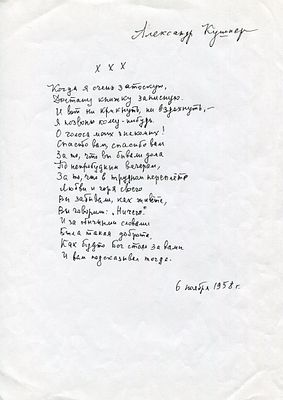 Александр Кушнер
x x x
Когда я очень затоскую,
Достану книжку записную.
И вот ни крикнуть, ни вздохнуть, –
Я позвоню кому-нибудь.
О голоса моих знакомых!
Спасибо вам, спасибо вам
За то, что вы бывали дома
По непробудным вечерам,
За то, что в трудном переплёте
Любви и горя своего
Вы забывали, как живёте,
Вы говорили: „Ничего".
И за обычными словами
Была такая доброта,
Как будто Бог стоял за вами
И вам подсказывал тогда.
6 ноября 1958 г.